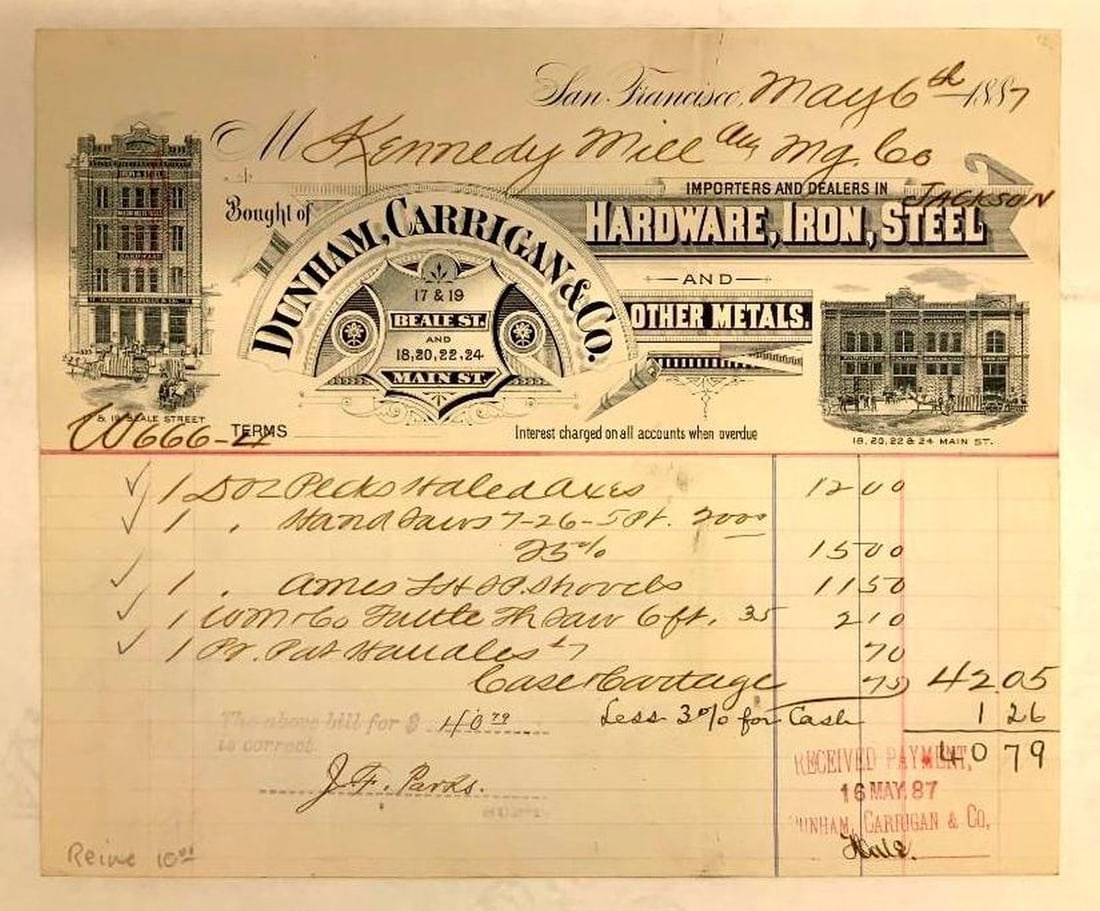 San Francisco, May 6th 1887
M Kennedy Mill and Mg. Co
JACKSON
Bought of
DUNHAM, CARRIGAN & CO.
17 & 19
BEALE ST.
AND
18, 20, 22, 24
MAIN ST.
IMPORTERS AND DEALERS IN
HARDWARE, IRON, STEEL
AND
OTHER METALS.
HARDWARE
17 & 19 BEALE STREET
18, 20, 22 & 24 MAIN ST.
W666-4
TERMS
Interest charged on all accounts when overdue
1 Doz Pecks Haled Axes 12 00
1 " Hand Saws 7-26-5 Pt. 20 00
25% 15 00
1 " Ames LH SP. Shovels 11 50
1 Tuttle Saw 6 ft. 35 2 10
1 Pr. Pat Handles #7 70
Case & Cartage 75 42 05
Less 3% for Cash 1 26
40 79
The above bill for $ 40.79
is correct.
J. F. Parks.
SUPT.
RECEIVED PAYMENT,
16 MAY. 87
DUNHAM, CARRIGAN & CO.
Hale.